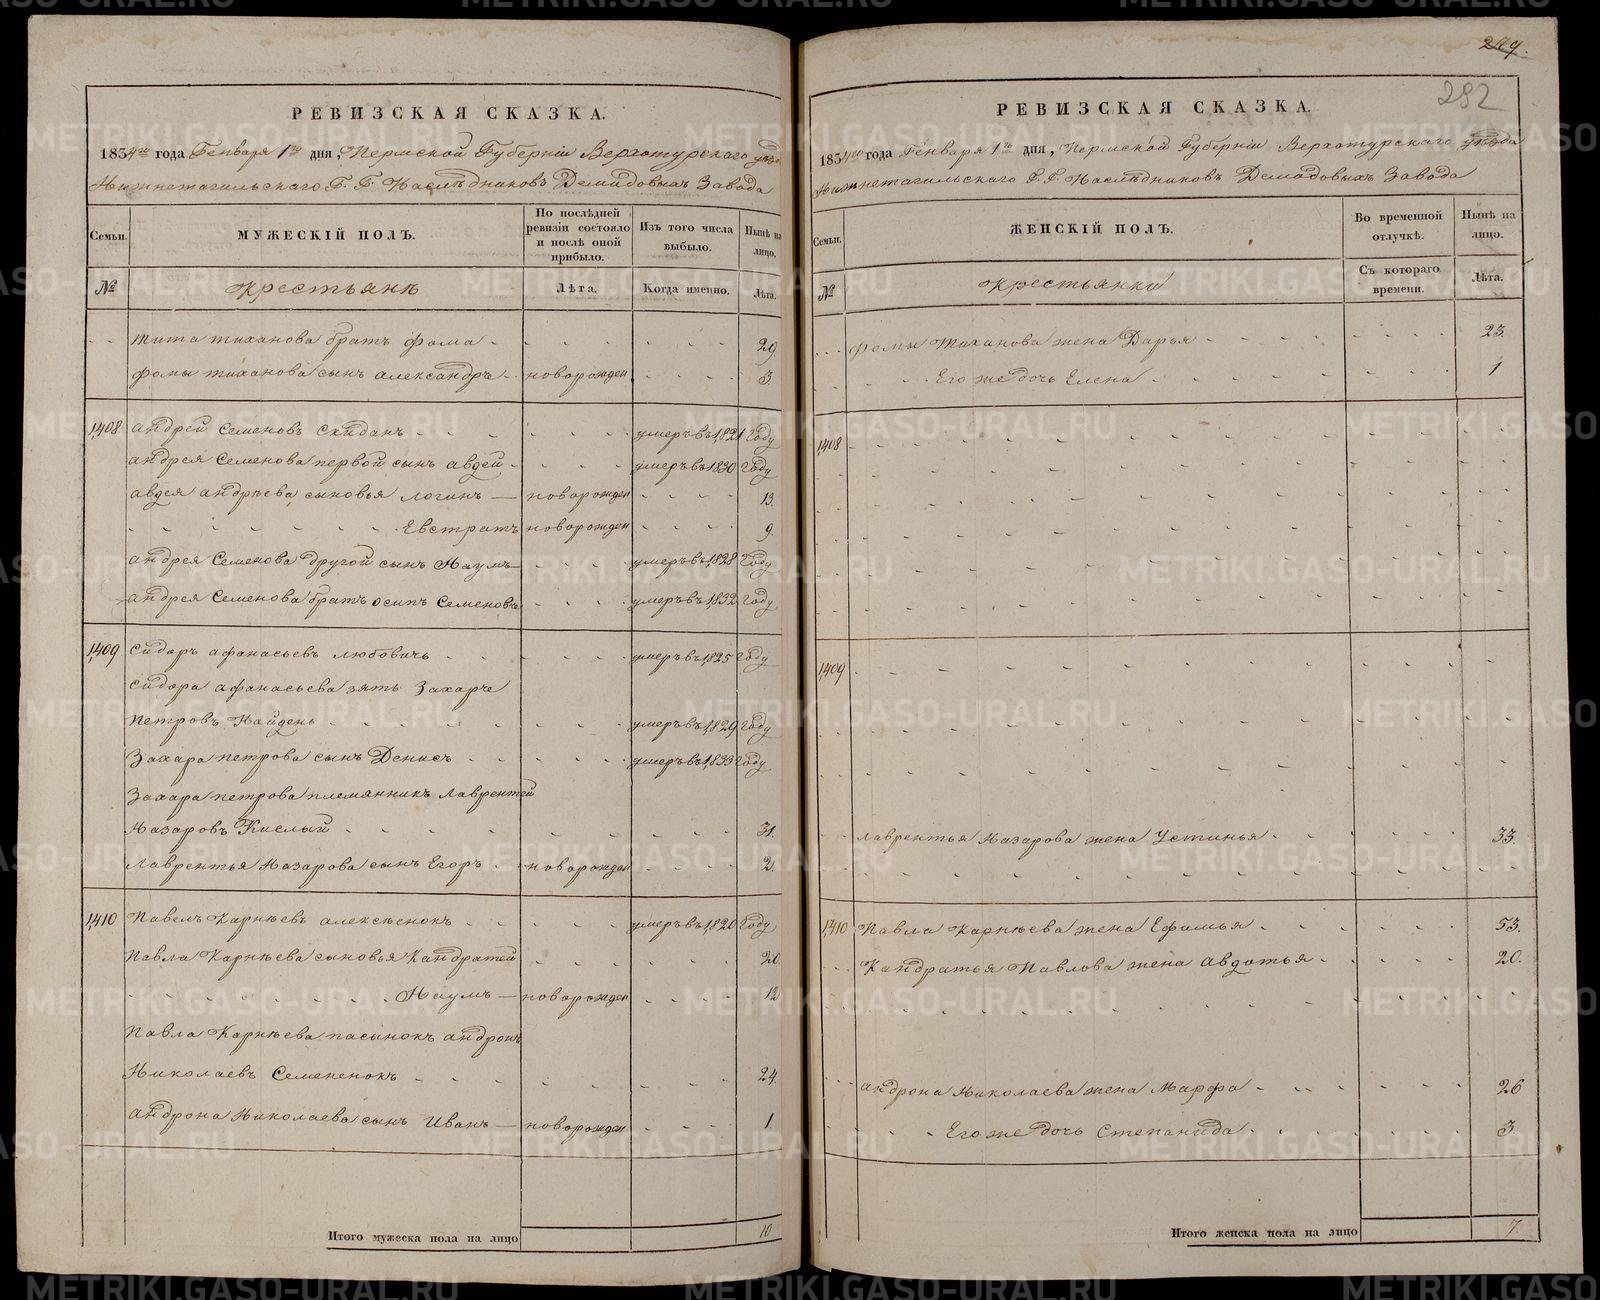 РЕВИЗСКАЯ СКАЗКА.
1834го года Генваря 1го дня, Пермской Губерніи Верхотурскаго уезда
Нижнетагильскаго Г. Г. Наследниковъ Демидовыхъ Завода
Семьи.
МУЖЕСКІЙ ПОЛЪ.
По послѣдней ревизіи состояло и послѣ оной прибыло.
Изъ того числа выбыло.
Нынѣ на лицо.
№
Крестьяне
Лѣта.
Когда именно.
Лѣта.
Тита Тиханова братъ Фома 29
Фомы Тиханова сынъ Александръ новорожден 3
1408. Андрей Семеновъ Скиданъ умеръ въ 1821 Году
Андрея Семенова первой сынъ Авдей умеръ въ 1830 Году
Авдея Андреева сыновья Логинъ новорожден 13.
Евстратъ новорожден 9.
Андрея Семенова другой сынъ Наумъ умеръ въ 1828 Году
Андрея Семенова братъ Осипъ Семеновъ умеръ въ 1832 Году
1409 Сидоръ Афанасьевъ Любовичь умеръ въ 1825 Году
Сидора Афанасьева зять Захаръ
Петровъ Найденъ умеръ въ 1829 Году
Захара Петрова сынъ Денисъ умеръ въ 1833 Году
Захара Петрова племянникъ Лаврентей
Назаровъ Кислый 31.
Лаврентья Назарова сынъ Егоръ новорожден 2.
1410 Павелъ Карнеевъ Алексенокъ умеръ въ 1820 Году
Павла Карнеева сыновья Кандратей 20
Наумъ новорожден 12
Павла Карнеева пасынокъ Андронъ
Николаевъ Семененокъ 24.
Андрона Николаева сынъ Иванъ новорожден 1.
Итого мужеска пола на лицо 10
279.
292
РЕВИЗСКАЯ СКАЗКА.
1834го года Генваря 1го дня, Пермской Губерніи Верхотурскаго уезда
Нижнетагильскаго Г. Г. Наследниковъ Демидовыхъ Завода
Семьи.
ЖЕНСКІЙ ПОЛЪ.
Во временной отлучкѣ.
Нынѣ на лицо.
№
Крестьянки
Съ котораго времени.
Лѣта.
Фомы Тиханова жена Дарья 23.
Его же дочь Елена 1
1408
1409
Лаврентья Назарова жена Устинья 33.
1410 Павла Карнеева жена Ефимья 53.
Кандратья Павлова жена Авдотья 20.
Андрона Николаева жена Марфа 26
Его же дочь Степанида 3
Итого женска пола на лицо 7.
METRIKI.GASO-URAL.RU